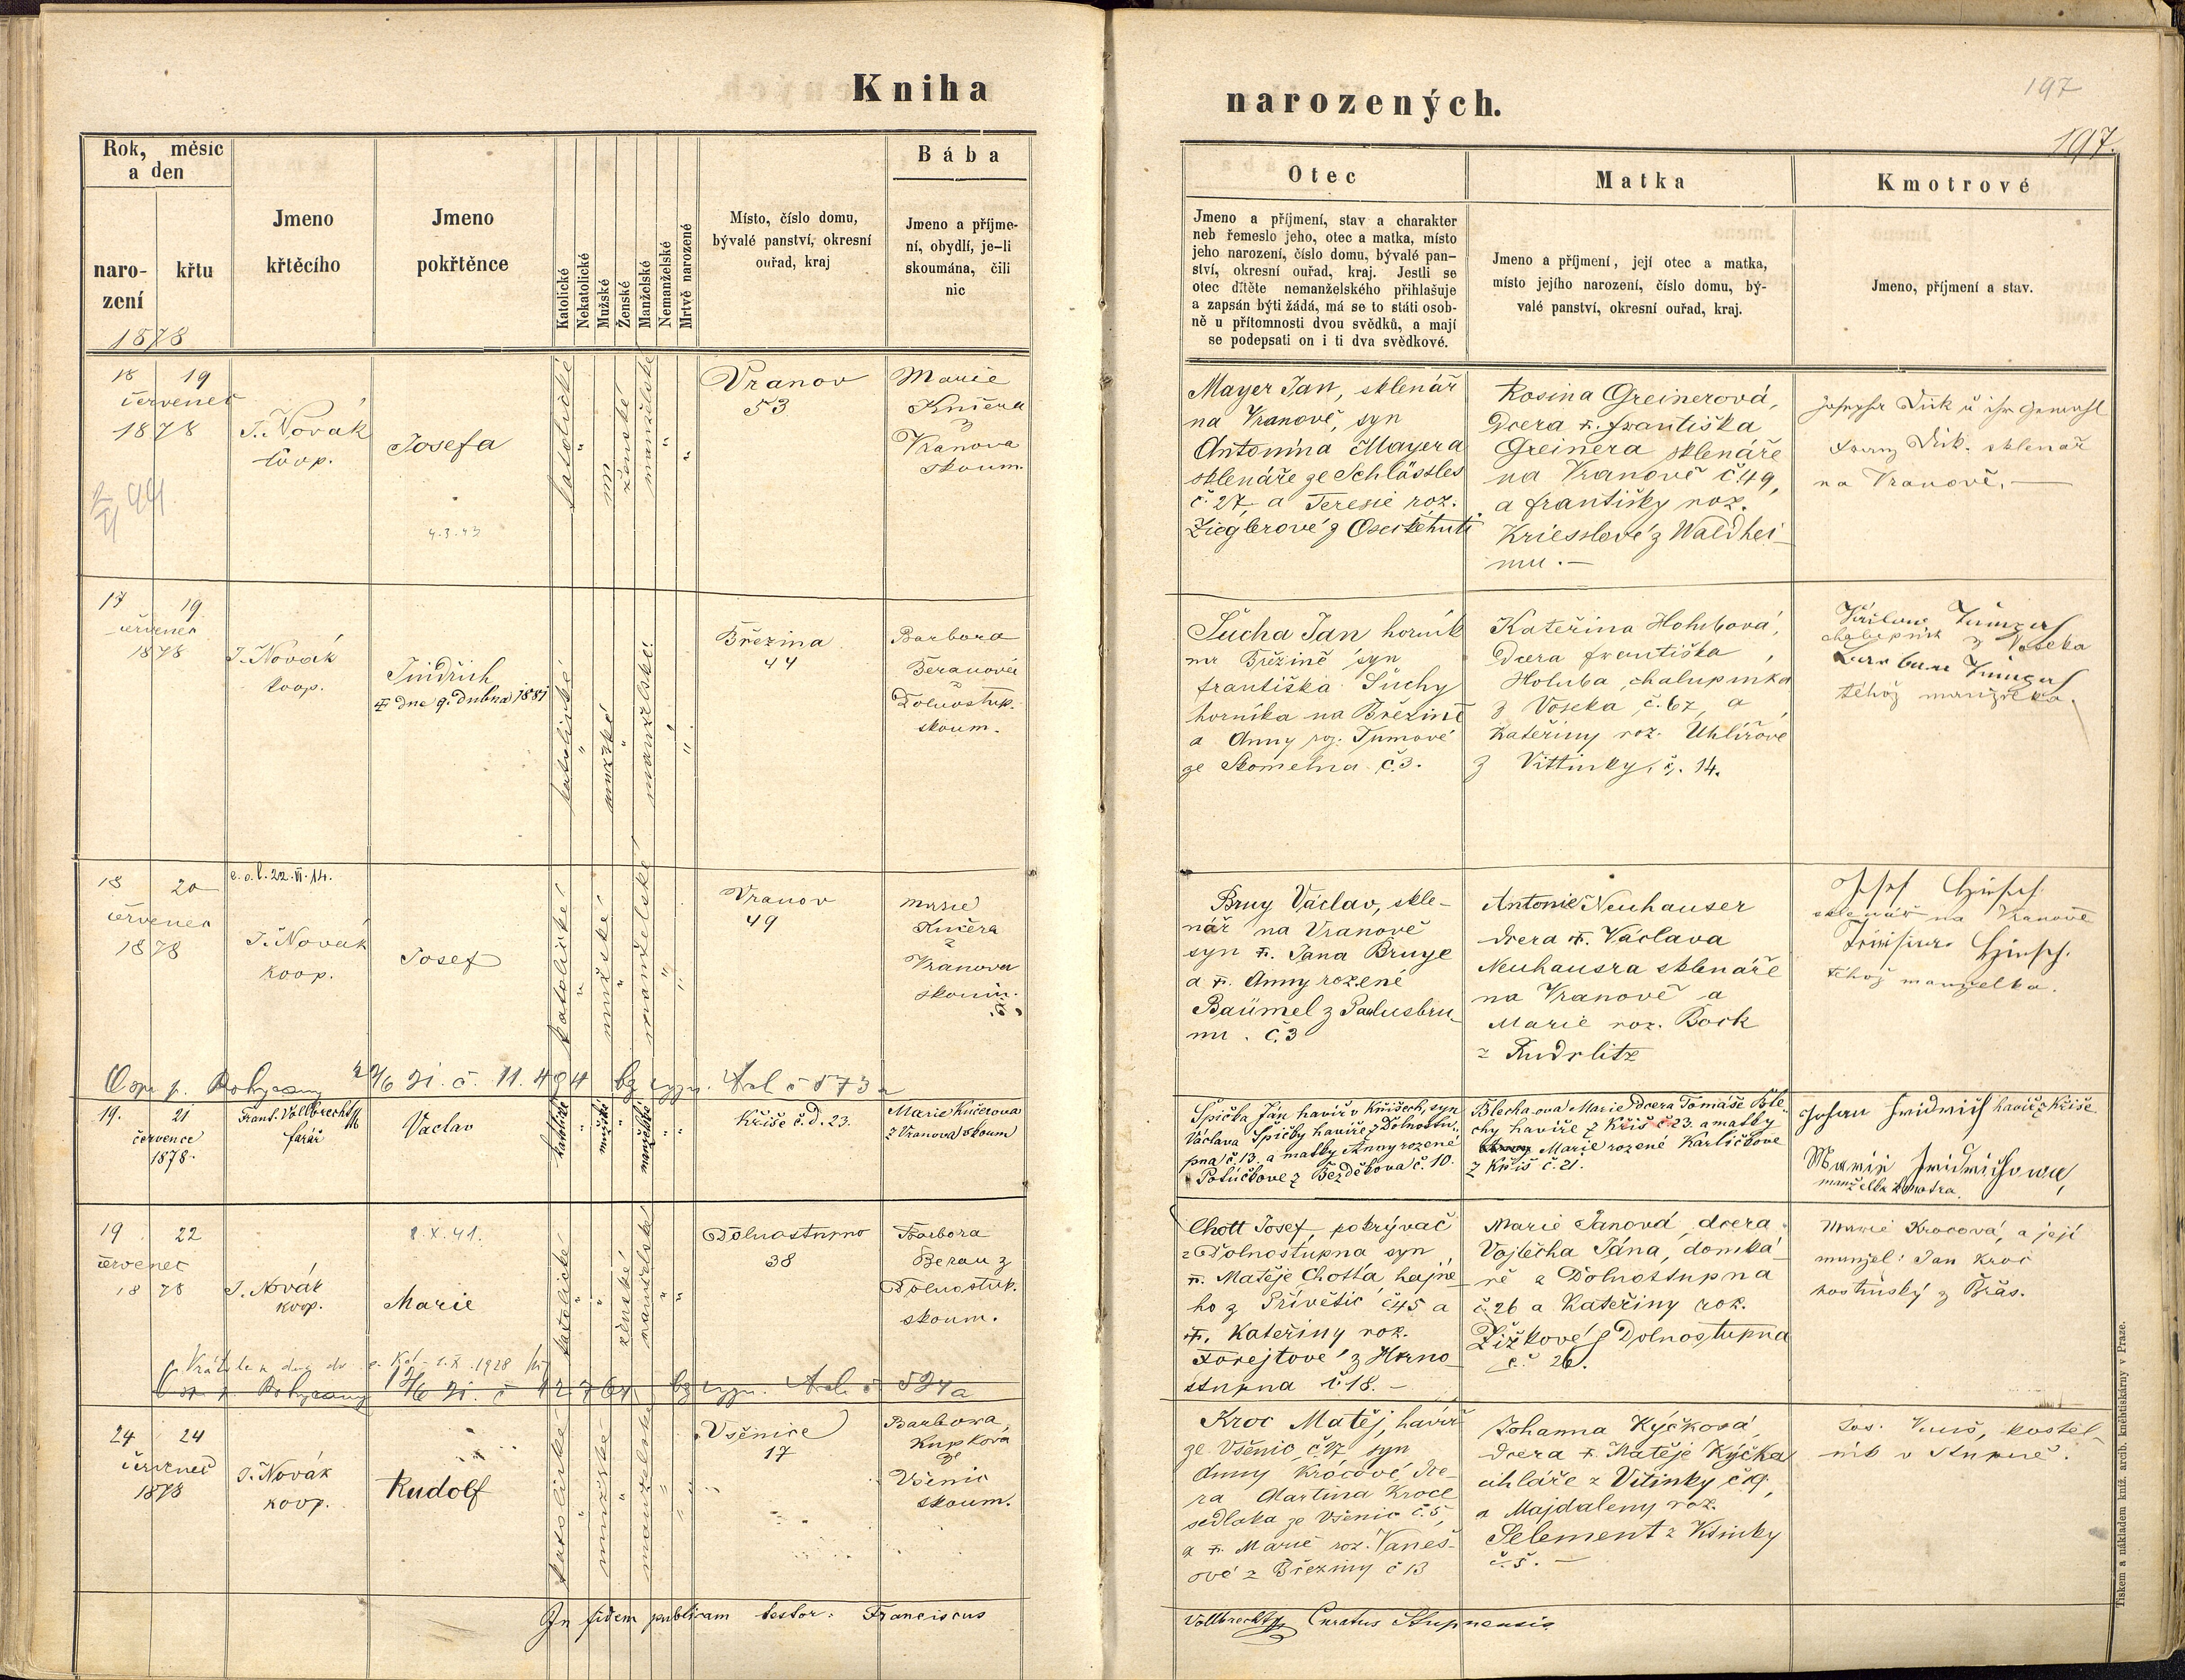 Kniha
narozených.
197
197.
Rok, měsíc
a den
naro-
zení
křtu
1878
Jmeno
křtěcího
Jmeno
pokřtěnce
Katolické
Nekatolické
Mužské
Ženské
Manželské
Nemanželské
Mrtvě narozené
Místo, číslo domu,
bývalé panství, okresní
ouřad, kraj
Bába
Jmeno a příjme-
ní, obydlí, je-li
skoumána, čili
nic
Otec
Jmeno a příjmení, stav a charakter
neb řemeslo jeho, otec a matka, místo
jeho narození, číslo domu, bývalé pan-
ství, okresní ouřad, kraj. Jestli se
otec dítěte nemanželského přihlašuje
a zapsán býti žádá, má se to státi osob-
ně u přítomnosti dvou svědků, a mají
se podepsati on i ti dva svědkové.
Matka
Jmeno a příjmení, její otec a matka,
místo jejího narození, číslo domu, bý-
valé panství, okresní ouřad, kraj.
Kmotrové
Jmeno, příjmení a stav.
18 19
červenec
1878
J. Novák
koop.
Josefa
4.3.43
katolické
ženské
manželské
Vranov
53
Marie
Kučera
z
Vranova
skoum.
Mayer Jan, sklenář
na Vranově, syn
Antonína Mayera
sklenáře ze Schlössles
č. 27, a Teresie roz.
Zieglerové z Oseckéhuti
Rosina Greinerová,
dcera †. františka
Greinera sklenáře
na Vranově č. 49,
a františky roz.
Kriesslové z Waldhei-
mu. —
sklenář
na Vranově. —
17 19
červenec
1878
J. Novák
koop.
Jindřich
† dne 9. dubna 1881
katolické
mužské
manželské
Březina
44
Barbora
Beranová
z
Dolnostup.
skoum.
Šucha Jan horník
na Březině syn
františka Šuchy
horníka na Březině
a Anny roz. Tumové
ze Skomelna č. 3.
Kateřina Holubová,
dcera františka
Holuba, chalupníka
z Voseka, č. 67, a
Kateřiny roz. Uhlířové
z Vittinky, č. 14.
chalupník z Voseka
téhož manželka.
18 20
červenec
1878
e. o. l. 22. VI. 14.
J. Novák
koop.
Josef
katolické
mužské
manželské
Vranov
49
Marie
Kučera
z
Vranova
skoum.
Bruy Václav, skle-
nář na Vranově
syn †. Jana Bruye
a †. Anny rozené
Baümel z Paulusbru-
nu. č. 3
Antonie Neuhauser
dcera †. Václava
Neuhausra sklenáře
na Vranově a
Marie roz. Bock
z
sklenář na Vranově
téhož manželka.
19. 21
července
1878.
Frant. Vollbrecht
farář
Václav
katolické
mužské
manželské
Kříše č. d. 23.
Marie Kučerova
z Vranova skoum
Špička Ján havíř v Kříšech, syn
Václava Špičky havíře z Dolnostu-
pna č. 13. a matky Anny rozené
Potůčkove z Bezděkova č. 10.
Blecha-ova Marie dcera Tomáše Ble-
chy havíře z Kříš č 23. a matky
Marie rozené Karličkove
z Kříš č. 21.
havíř z Kříše
manželka kmotra.
19 22
červenec
18 78
J. Novák
koop.
8. X. 41.
Marie
katolické
ženské
manželské
Dolnostupno
38
Barbora
Beran z
Dolnostup.
skoum.
Chott Josef, pokrývač
z Dolnostupna, syn
†. Matěje Chotta, hajné-
ho z Přívětic č 45 a
†. Kateřiny roz.
Forejtové z Horno-
stupna č. 18. —
Marie Janová, dcera
Vojtěcha Jána, domká-
ře z Dolnostupna
č. 26 a Kateřiny roz.
Žižkové z Dolnostupna
č. 26.
Marie Krocová, a její
manžel: Jan Kroc
z Břas.
24 24
červenec
1878
J. Novák
koop.
Rudolf
katolické
mužské
manželské
Všenice
17
Barbora
Kupková
ze
Všenic
skoum.
Kroc Matěj, havíř
ze Všenic, č 17 syn
Anny Krocové dce-
ra Martina Kroce
sedláka ze Všenic č. 5,
a †. Marie roz. Vaneš-
ové z Březiny č 13
Johanna Kýčková,
dcera †. Matěje Kýčka
uhláře z Vitinky č 19,
a Majdaleny roz.
Selement z Vitinky
č. 5. —
kostel-
ník v Stupně.
In fidem publicam testor: Franciscus
Vollbrecht Curatus Stupnensis
Tiskem a nákladem kníž. arcib. knihtiskárny v Praze.